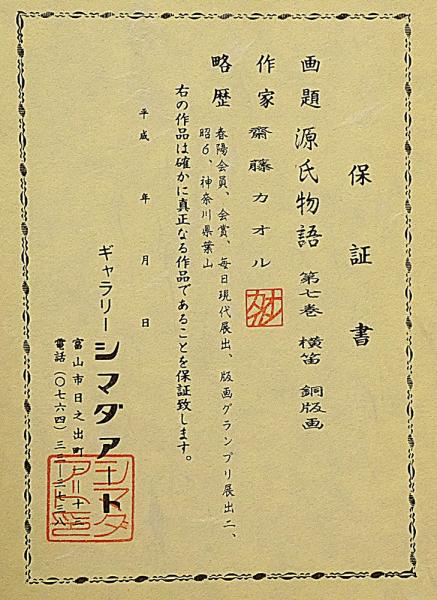 保証書
画題 源氏物語 第七巻 横笛 銅版画
作家 齋藤カオル
略歴 春陽会員、会賞、毎日現代展出、版画グランプリ展出二、
昭6、神奈川県葉山
右の作品は確かに真正なる作品であることを保証致します。
平成 年 月 日
ギャラリー シマダアート
富山市日之出町
電話（〇七六四）
カオル
シマダアート